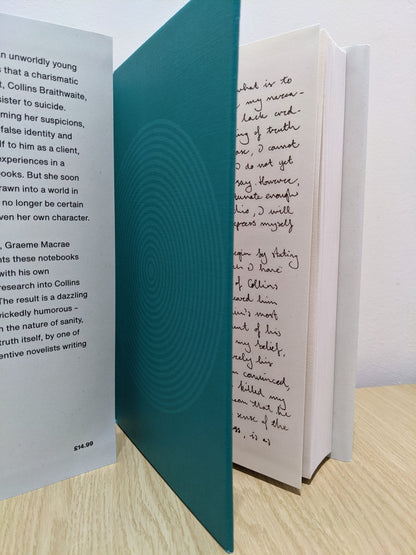 n unworldly young
s that a charismatic
t, Collins Braithwaite,
sister to suicide.
ming her suspicions,
false identity and
lf to him as a client,
experiences in a
books. But she soon
rawn into a world in
no longer be certain
ven her own character.
, Graeme Macrae
nts these notebooks
with his own
research into Collins
The result is a dazzling
wickedly humorous –
n the nature of sanity,
truth itself, by one of
entive novelists writing
£14.99
what is to
my narra-
lack cred-
ing of truth
ase, I cannot
I do not yet
say. However,
tunate enough
I will
xpress myself
egin by stating
I have
of Collins
him
most
nt of his
my belief,
rely his
convinced,
killed my
son that he
sense of the
is as